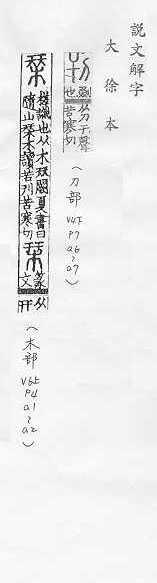 說文解字
大徐本
刊 剟也从刀干聲苦寒切
（刀部 V4下 P7 a6~a7）
栞 槎識也从木闕夏書曰
隨山栞木讀若刊苦寒切 篆文从幵
（木部 V6上 P4 a1~a2）